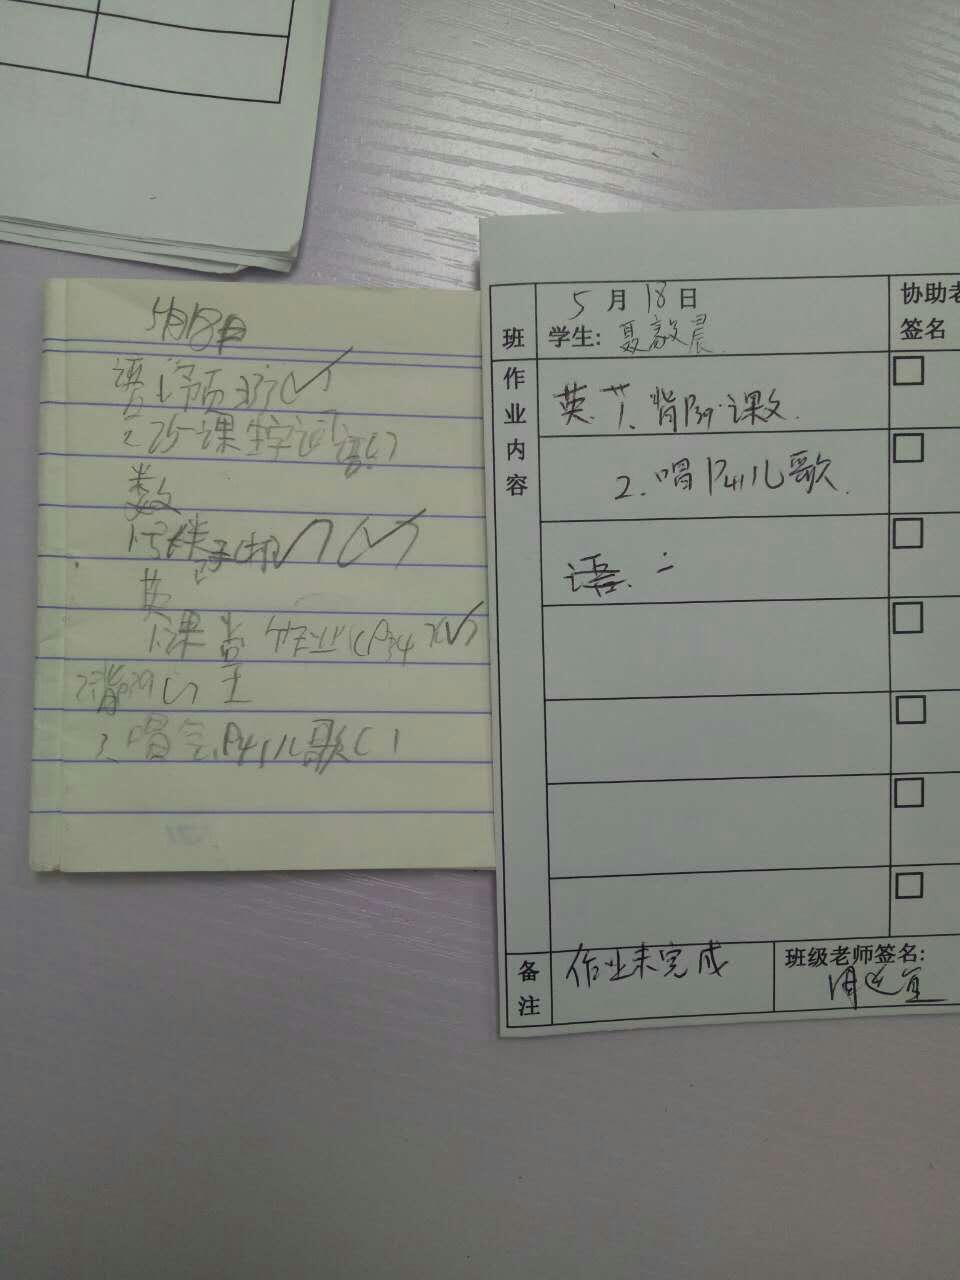 5月18日
语1、预习(✓)
2、25课生字词语( )
数
(✓)
英
1.课堂作业(P34)(✓)
2.背P39( )
3、唱会P41儿歌( )
班
5月18日
学生:
协助老
签名
作业内容
英. 1、背P39.课文.
2.唱P41儿歌.
语.
备注
作业未完成
班级老师签名: